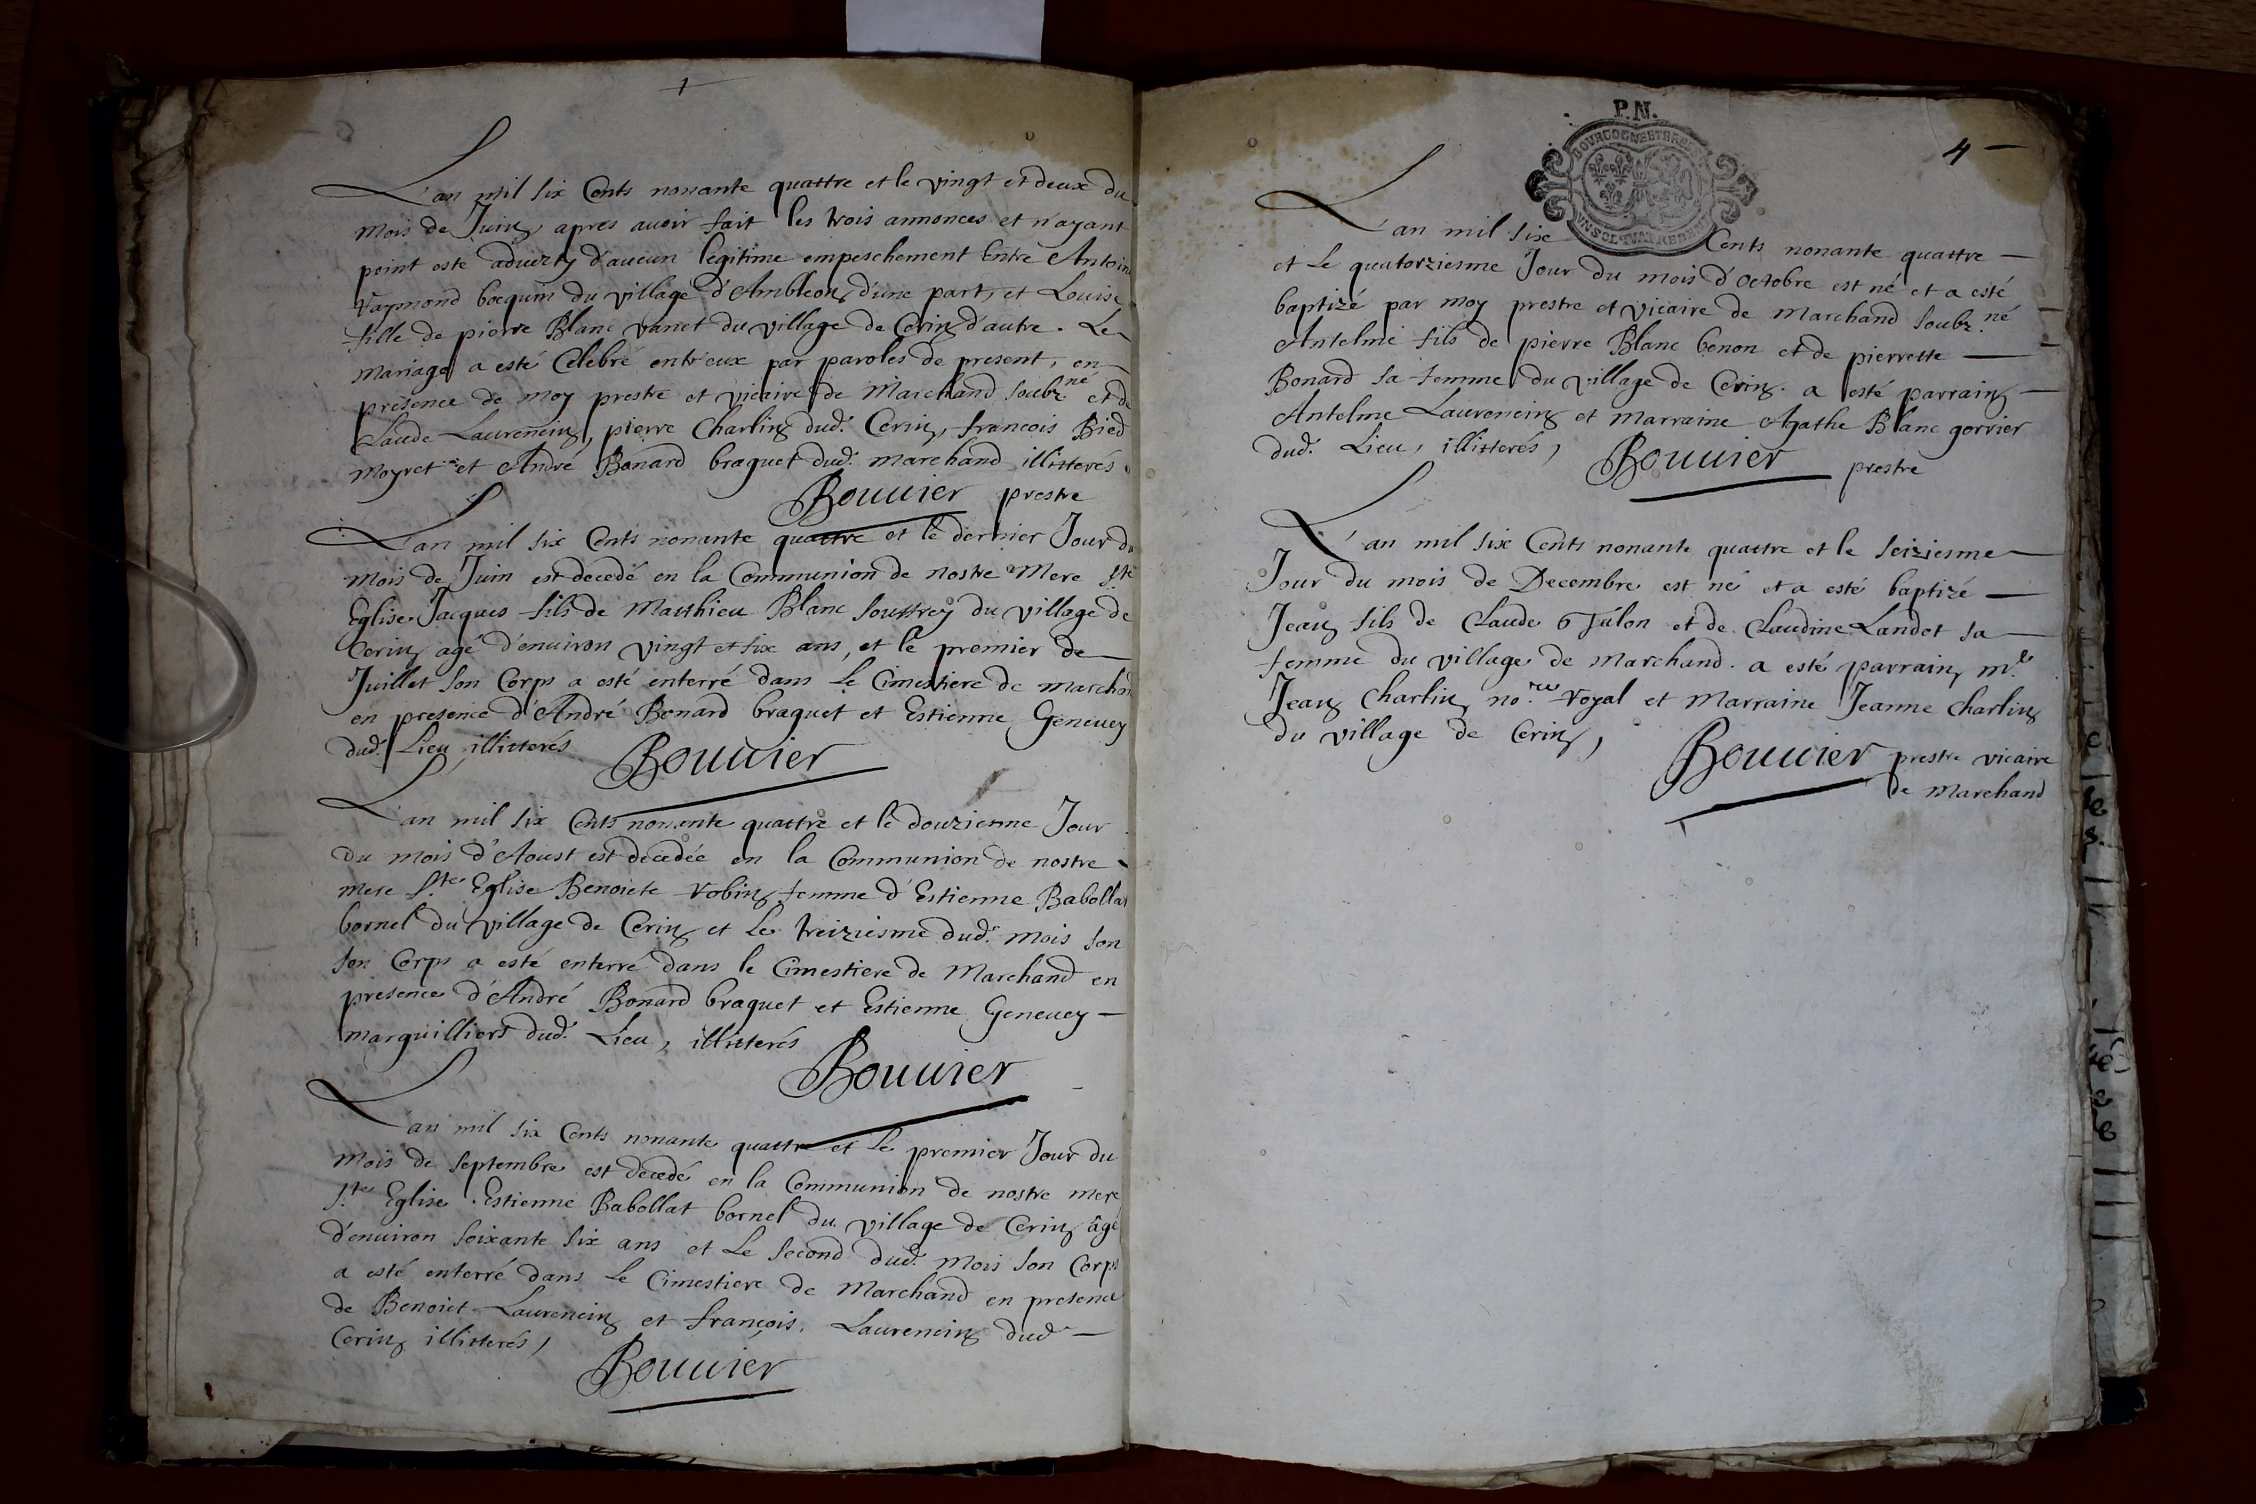 L'an mil six Cents nonante quattre et le vingt et deux du
mois de Juin, apres auoir fait les trois annonces et n'ayant
point esté aduerty d'aucun legitime empeschement Entre Antoin
Raymond bocquin du village d'Ambleon, d'une part, et Louise
fille de pierre Blanc vanet du village de Cerin d'autre. Le
mariage a esté Celebré entr'eux par paroles de present, en
presence de moy prestre et vicaire de Marchand soubz.né et de
Claude Laurencin, pierre Charlin dud. Cerin, francois Bied
moyret et André Bonard braquet dud. marchand illitterés
Bouuier prestre
L'an mil six Cents nonante quattre et le dernier Jour du
mois de Juin est decedé en la Communion de nostre Mere S.te
Eglise Jacques fils de Matthieu Blanc souffrey du village de
Cerin agé d'enuiron vingt et six ans, et le premier de
Juillet son Corps a esté enterré dans le Cimestiere de marchan
en presence d'André Bonard braquet et Estienne Geneuey
dud. Lieu, illitterés
Bouuier
L'an mil six Cents nonante quattre et le douzienne Jour
du mois d'Aoust est decedée en la Communion de nostre
mere S.te Eglise Benoiete robin femme d'Estienne Babollat
bornel du village de Cerin et le treiziesme dud. mois son
son Corps a esté enterré dans le Cimestiere de Marchand en
presence d'André Bonard braquet et Estienne Geneuey
marguilliers dud. Lieu, illitterés
Bouuier
L'an mil six Cents nonante quattre et le premier Jour du
mois de septembre est decedé en la Communion de nostre mere
S.te Eglise. Estienne Babollat bornel du village de Cerin âgé
d'enuiron soixante six ans et le second dud. mois son Corps
a esté enterré dans le Cimestiere de Marchand en presence
de Benoict Laurencin et françois. Laurencin dud.
Cerin illitterés,
Bouuier
P.N.
4
L'an mil six Cents nonante quattre
et le quatorziesme Jour du mois d'octobre est né et a esté
baptizé par moy prestre et vicaire de marchand soubz.né
Antelme fils de pierre Blanc benon et de pierrette
Bonard sa femme du village de Cerin. a esté parrain
Antelme Laurencin et marraine Agathe Blanc gorrier
dud. Lieu, illitterés,
Bouuier prestre
L'an mil six Cents nonante quattre et le seiziesme
Jour du mois de Decembre est né et a esté baptizé
Jean fils de Claude et de Claudine Landot sa
femme du village de marchand. a esté parrain, m.e
Jean Charlin no.re royal et marraine Jeanne Charlin
du village de Cerin,
Bouuier prestre vicaire
de marchand